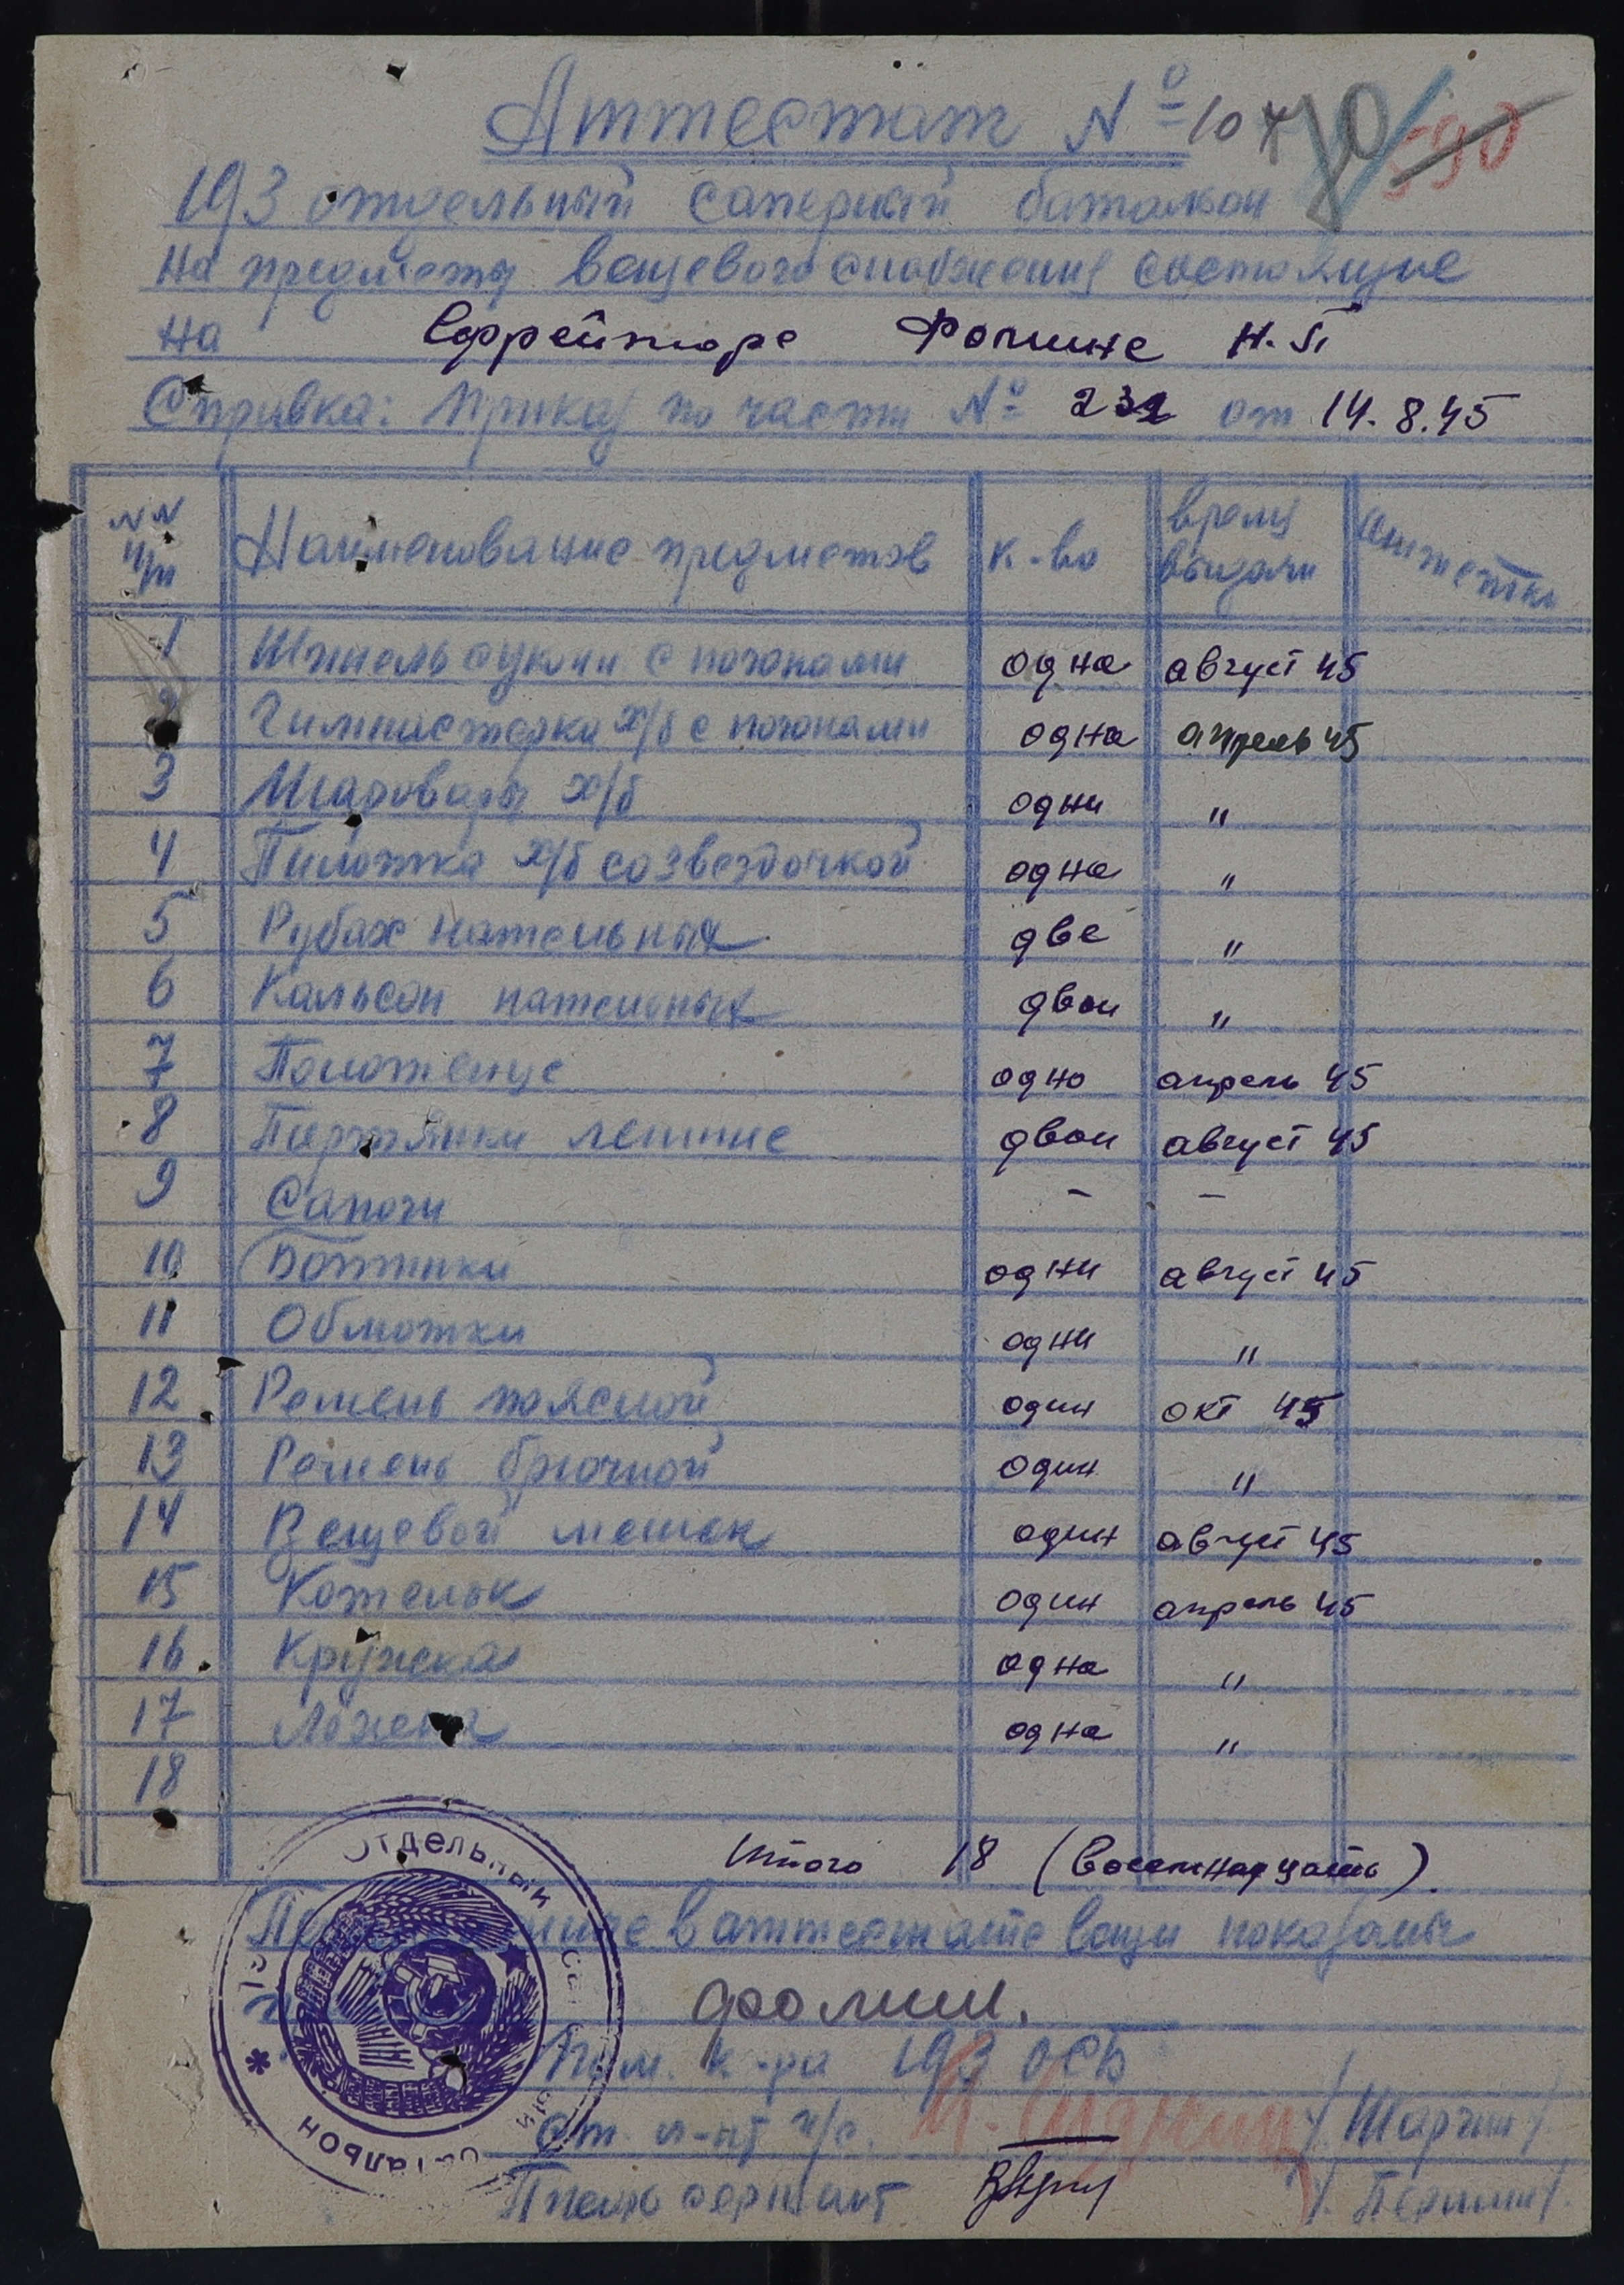 Аттестат № 107 70 590
193 отдельный саперный батальон
На предметы вещевого снабжения состоящие
на Ефрейторе Фомине Н.П
Справка: Приказ по части № 232 от 14.8.45
NN п/п Наименование предметов к-во время выдачи отметки
1 Шинель сукон с погонами одна август 45
2 Гимнастерка х/б с погонами одна апрель 45
3 Шаровары х/б одни "
4 Пилотка х/б со звездочкой одна "
5 Рубах нательных две "
6 Кальсон нательных двои "
7 Полотенце одно апрель 45
8 Портянки летние двои август 45
9 Сапоги - -
10 Ботинки одни август 45
11 Обмотки одни "
12 Ремень поясной один окт 45
13 Ремень брючной один "
14 Вещевой мешок один август 45
15 Котелок один апрель 45
16 Кружка одна "
17 Ложка одна "
18
Итого 18 (восемнадцать).
в аттестате вещи показаны
Фомин.
Пом. к-ра 193 ОСБ
Ст. л-нт и/с. /Шаргин/
сержант /Першин/.
Отдельный
батальон